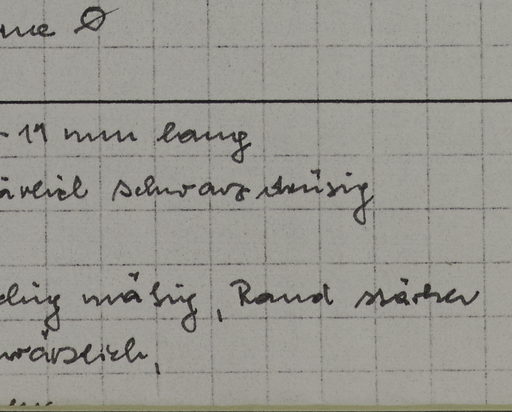 me Ø
- 11 mm lang
ärlich schwarz drüsig
mäßig, Rand stärker
wärzlich,